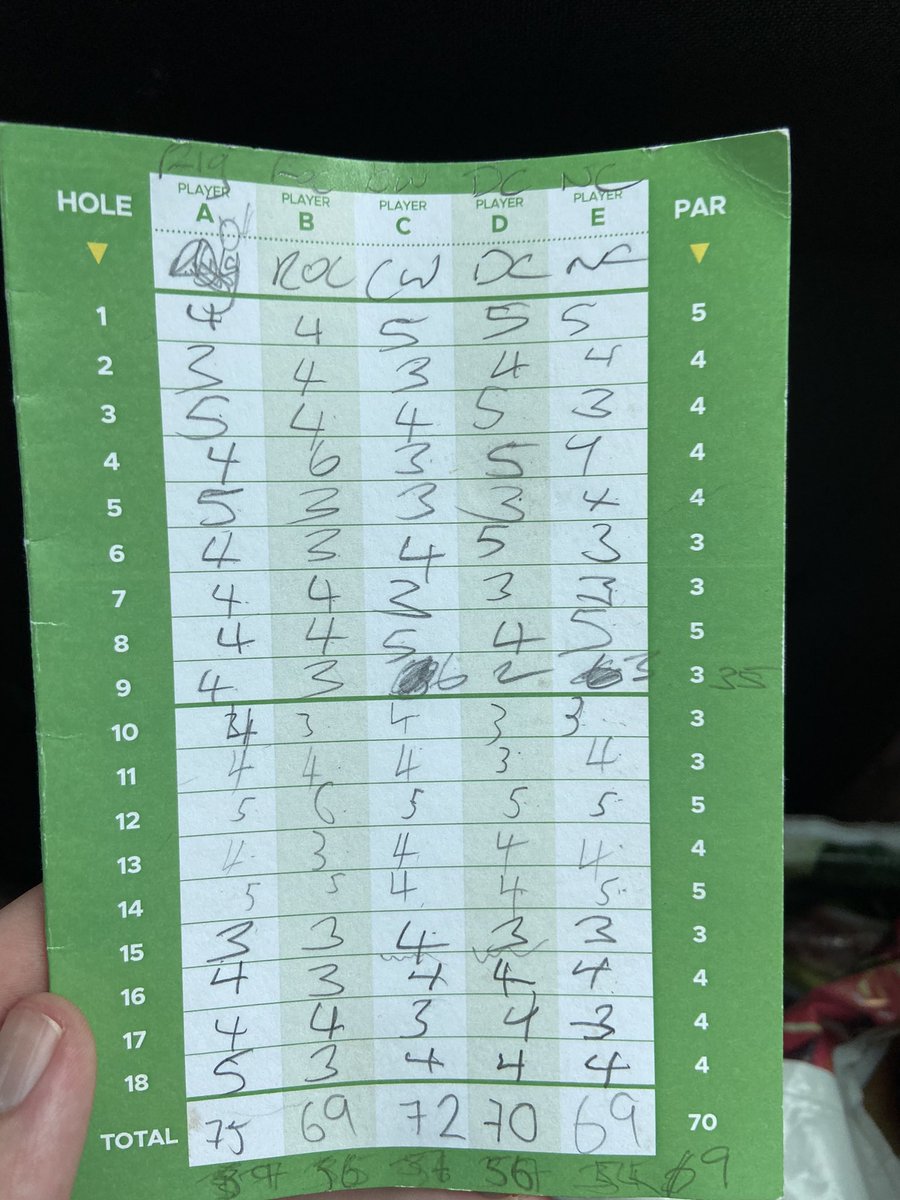 DC NC
HOLE PLAYER A PLAYER B PLAYER C PLAYER D PLAYER E PAR
ROC CW DC NC
1 4 4 5 5 5 5
2 3 4 3 4 4 4
3 5 4 4 5 3 4
4 4 6 3 5 4 4
5 5 3 3 3 4 4
6 4 3 4 5 3 3
7 4 4 3 3 3
8 4 4 5 4 5 5
9 4 3 6 2 3 3 35
10 4 3 4 3 3 3
11 4 4 4 3 4 3
12 5 6 5 5 5 5
13 4 3 4 4 4 4
14 5 5 4 4 5 5
15 3 3 4 3 3 3
16 4 3 4 4 4 4
17 4 4 3 4 3 4
18 5 3 4 4 4 4
TOTAL 75 69 72 70 69 70
36 36 69